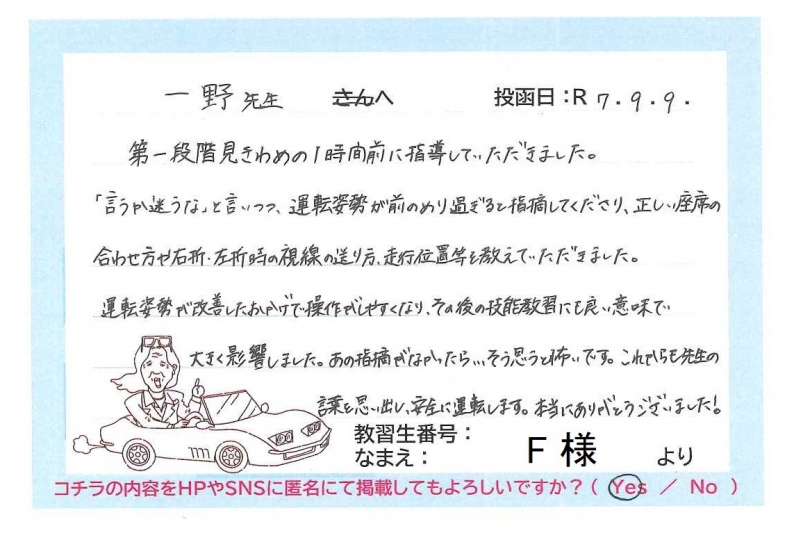 一野先生 さんへ 投函日:R 7.9.9.
第一段階見きわめの1時間前に指導していただきました。
「言うか迷うな」と言いつつ、運転姿勢が前のめり過ぎると指摘してくださり、正しい座席の
合わせ方や右折・左折時の視線の送り方、走行位置等を教えていただきました。
運転姿勢が改善したおかげで操作がしやすくなり、その後の技能教習にも良い意味で
大きく影響しました。あの指摘がなかったら…そう思うと怖いです。これからも先生の
言葉を思い出し、安全に運転します。本当にありがとうございました!
教習生番号:
なまえ: F 様 より
コチラの内容をHPやSNSに匿名にて掲載してもよろしいですか?( Yes / No )